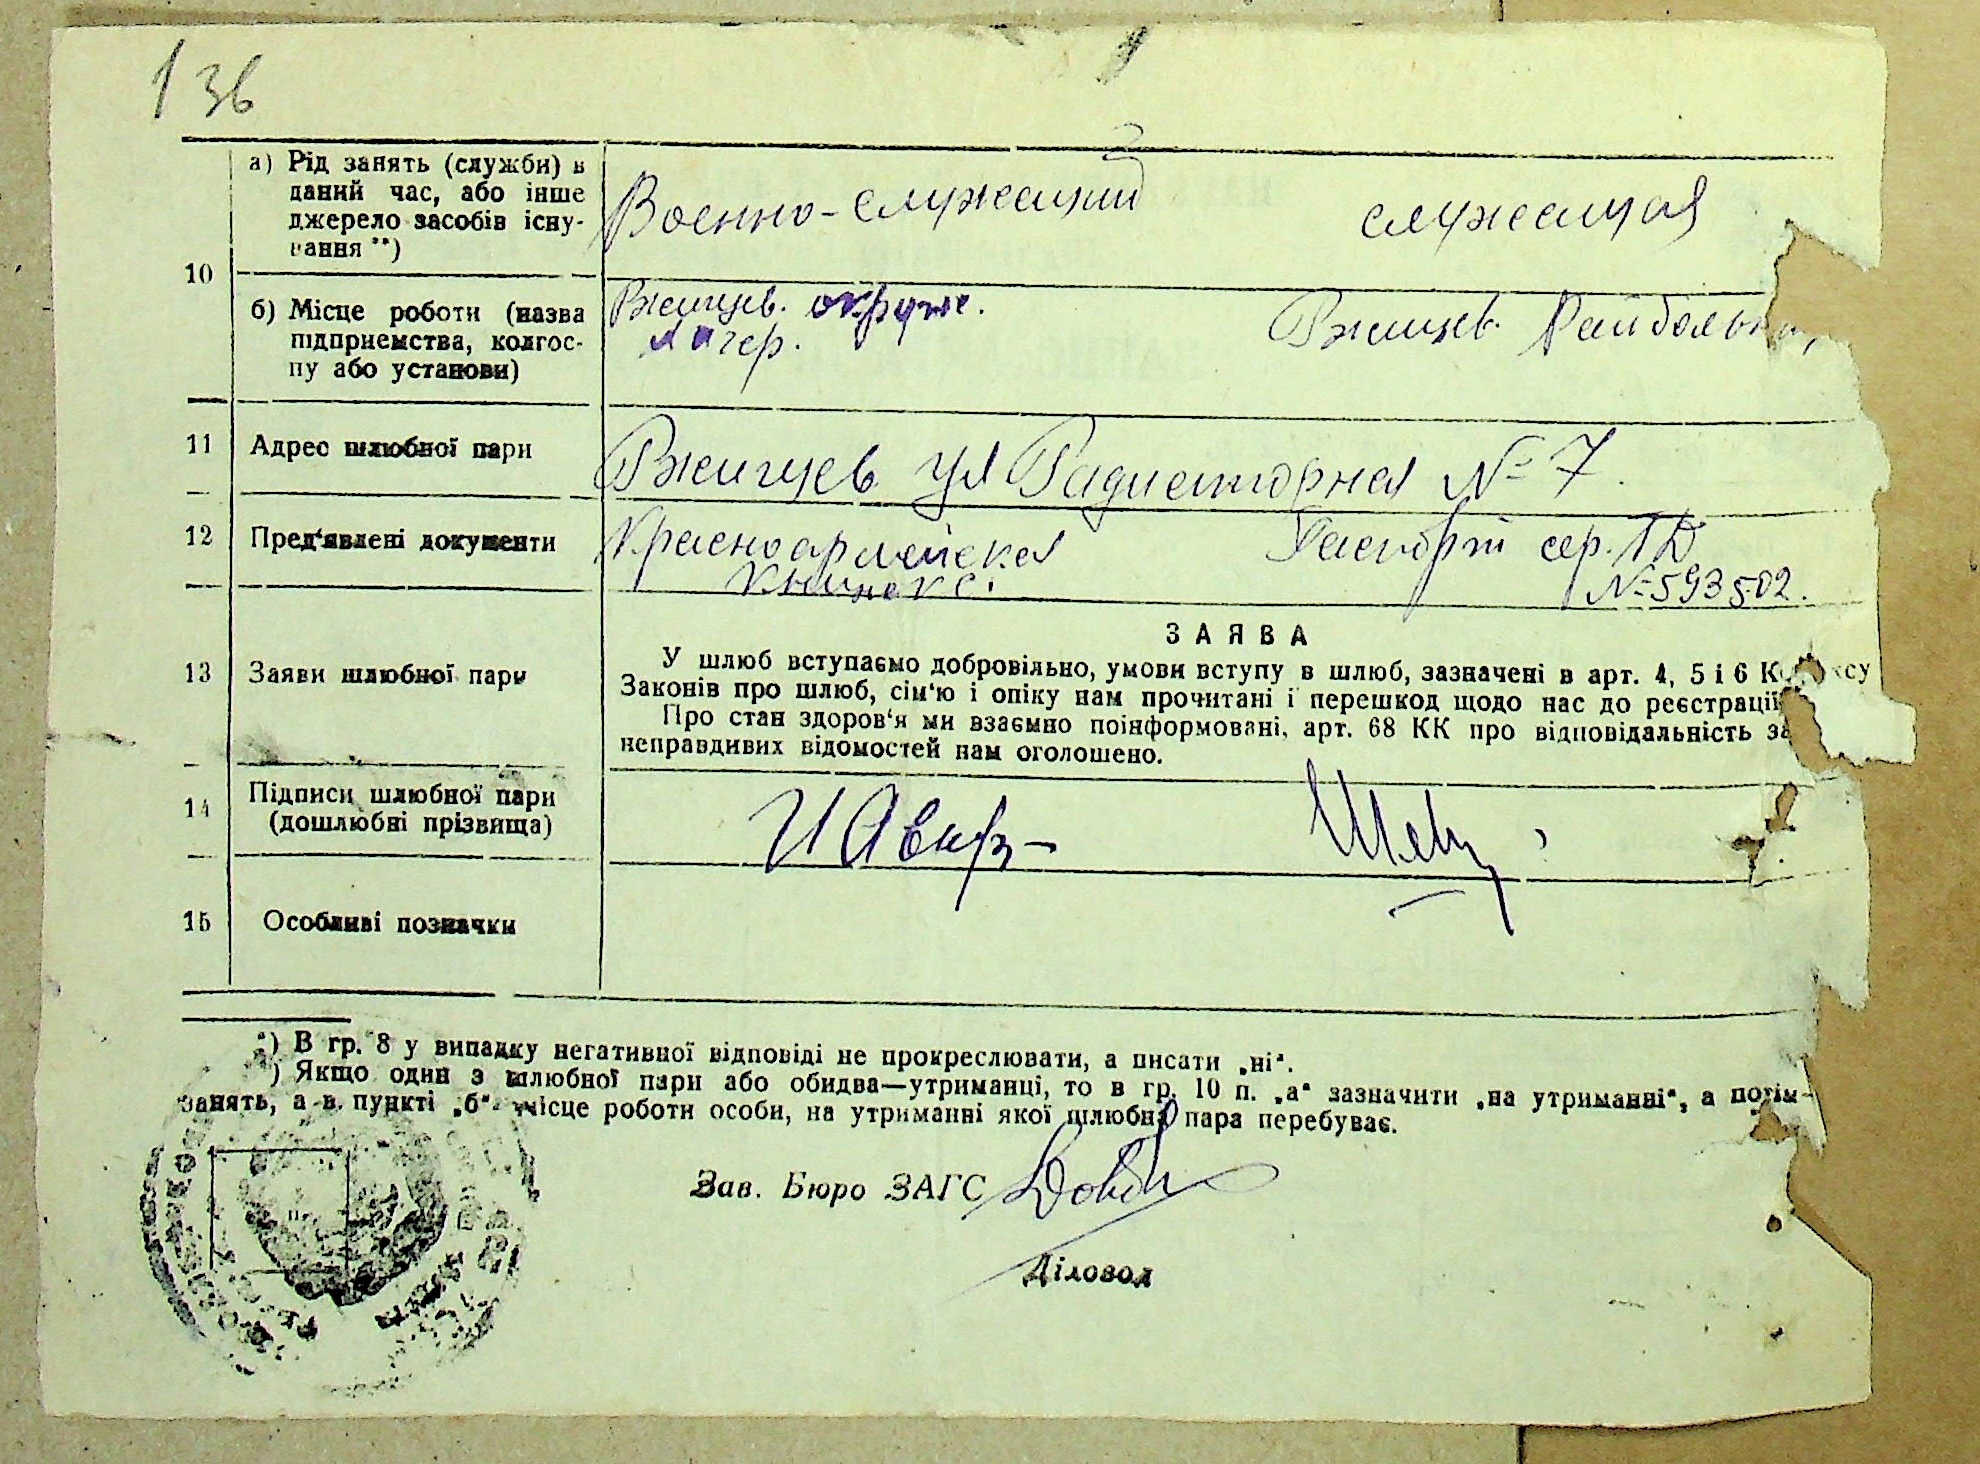 136
10
а) Рід занять (служби) в
даний час, або інше
джерело засобів існу-
вання **)
Военно-служащий
служащая
б) Місце роботи (назва
підприємства, колгос-
пу або установи)
Ржищев. окруж.
лагер.
Ржищев. Райбольн
11
Адрес шлюбної пари
Ржищев ул № 7.
12
Пред‘явлені документи
Красноармейская
книжка.
Паспорт сер. ТД
№ 593502.
13
Заяви шлюбної пари
ЗАЯВА
У шлюб вступаємо добровільно, умови вступу в шлюб, зазначені в арт. 4, 5 і 6
Законів про шлюб, сім‘ю і опіку нам прочитані і перешкод щодо нас до реєстрації
Про стан здоров‘я ми взаємно поінформовані, арт. 68 КК про відповідальність за
неправдивих відомостей нам оголошено.
14
Підписи шлюбної пари
(дошлюбні прізвища)
15
Особливі позначки
*) В гр. 8 у випадку негативної відповіді не прокреслювати, а писати „ні“.
) Якщо один з шлюбної пари або обидва—утриманці, то в гр. 10 п. „а“ зазначити „на утриманні“, а потім—
занять, а в пункті „б“ місце роботи особи, на утриманні якої шлюбна пара перебуває.
Зав. Бюро ЗАГС
Діловод